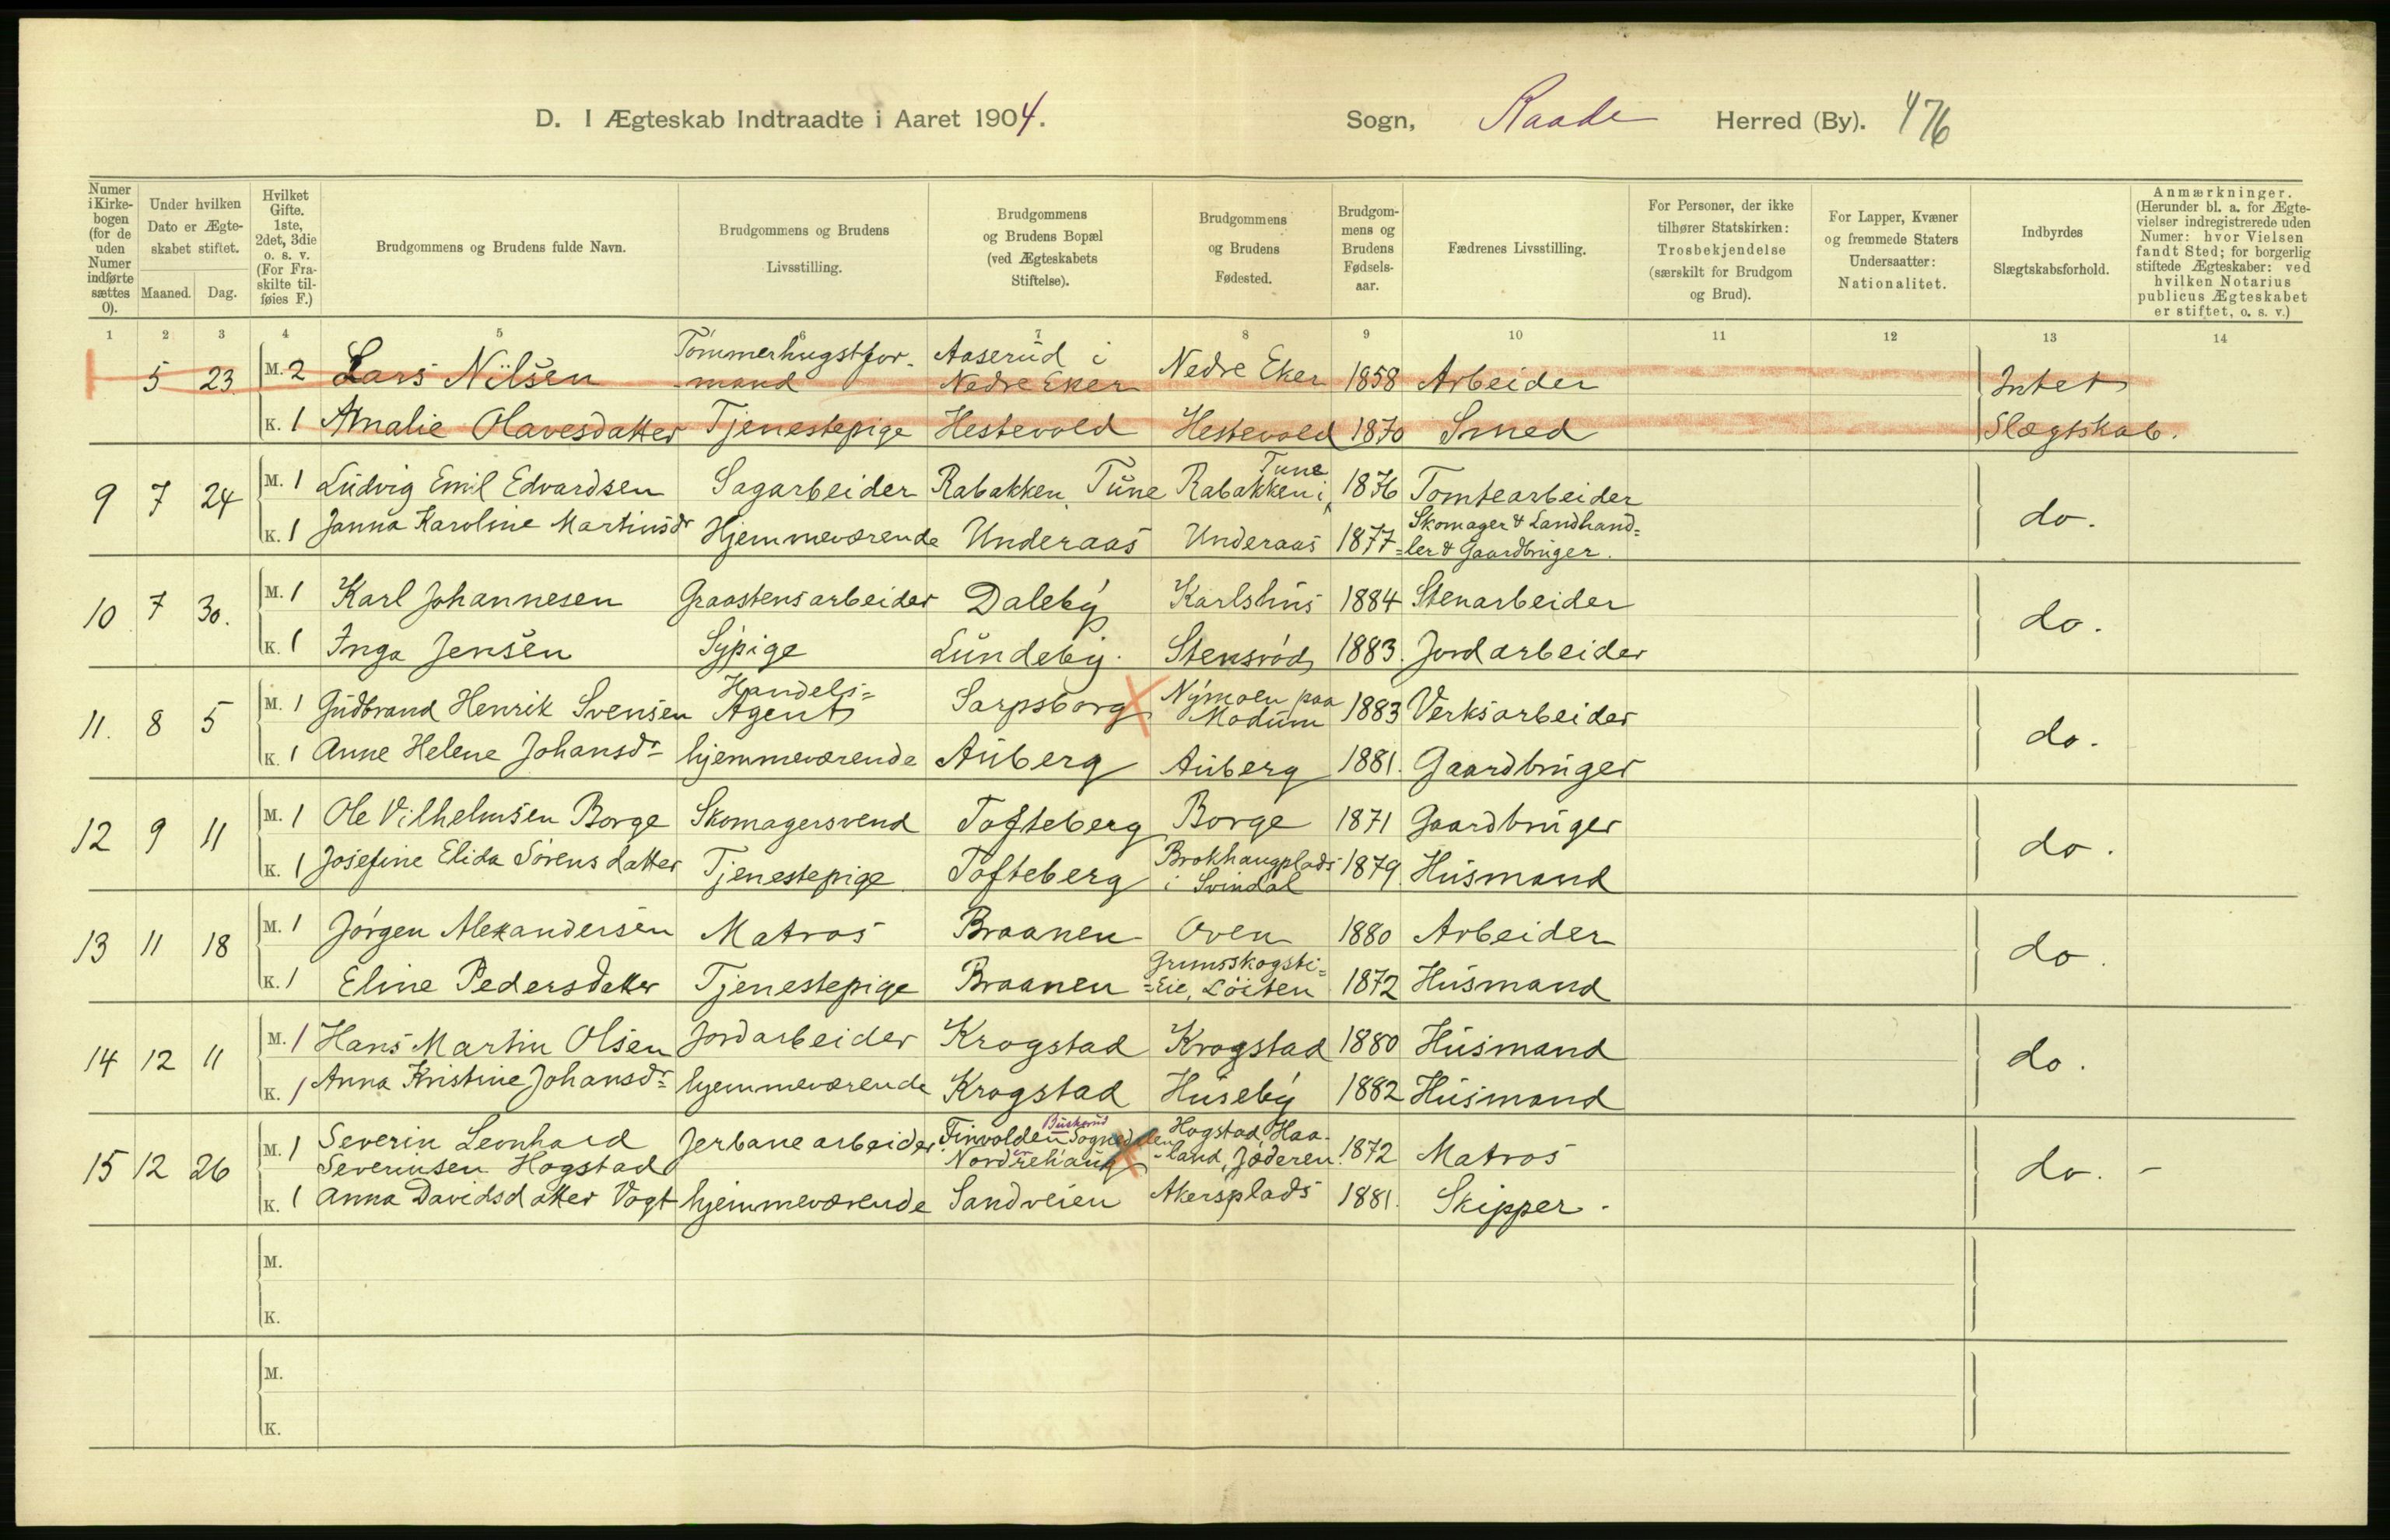 D. I Ægteskab Indtraadte i Aaret 1904. Sogn, Raade Herred (By). 476
Numer i Kirkebogen (for de uden Numer indførte sættes 0).
Under hvilken Dato er Ægteskabet stiftet.
Maaned. Dag.
Hvilket Gifte. 1ste, 2det, 3die o. s. v. (For Fraskilte tilføies F.)
Brudgommens og Brudens fulde Navn.
Brudgommens og Brudens Livsstilling.
Brudgommens og Brudens Bopæl (ved Ægteskabets Stiftelse).
Brudgommens og Brudens Fødested.
Brudgommens og Brudens Fødselsaar.
Fædrenes Livsstilling.
For Personer, der ikke tilhører Statskirken: Trosbekjendelse (særskilt for Brudgom og Brud).
For Lapper, Kvæner og fremmede Staters Undersaatter: Nationalitet.
Indbyrdes Slægtskabsforhold.
Anmærkninger. (Herunder bl. a. for Ægtevielser indregistrerede uden Numer: hvor Vielsen fandt Sted; for borgerlig stiftede Ægteskaber: ved hvilken Notarius publicus Ægteskabet er stiftet, o. s. v.)
1 2 3 4 5 6 7 8 9 10 11 12 13 14
5 23 M. 2 Lars Nilsen Tømmerhugstfor-mand Aaserud i Nedre Eker Nedre Eker 1858 Arbeider Intet
K. 1 Amalie Olavesdatter Tjenestepige Hestevold Hestevold 1870 Smed Slægtskab.
9 7 24 M. 1 Ludvig Emil Edvardsen Sagarbeider Rabakken, Tune Rabakken i Tune 1876 Tomtearbeider do.
K. 1 Janna Karoline Martinsdr Hjemmeværende Underaas Underaas 1877 Skomager & Landhand=ler & Gaardbruger.
10 7 30. M. 1 Karl Johannesen Graastensarbeider Daleby Karlshus 1884 Stenarbeider do.
K. 1 Inga Jensen Sypige Lundeby. Stensrød 1883. Jordarbeider
11. 8 5 M. 1 Gudbrand Henrik Svensen Handels=Agent Sarpsborg Nymoen paa Modum 1883 Verksarbeider do.
K. 1 Anne Helene Johansdr hjemmeværende Auberg Auberg 1881. Gaardbruger
12 9 11 M. 1 Ole Vilhelmsen Borge Skomagersvend Tofteberg Borge 1871 Gaardbruger do.
K. 1 Josefine Elida Sørensdatter Tjenestepige Tofteberg Brokhaugplads i Svindal 1879. Husmand
13 11 18 M. 1 Jørgen Alexandersen Matros Braanen Oven 1880 Arbeider do.
K. 1 Eline Pedersdatter Tjenestepige Braanen Grumsskogsti=Eie, Løiten 1872 Husmand
14 12 11 M. 1 Hans Martin Olsen Jordarbeider Krogstad Krogstad 1880 Husmand do.
K. 1 Anna Kristine Johansdr hjemmeværende Krogstad Huseby 1882 Husmand
15 12 26 M. 1 Severin Leonhard Severinsen Hogstad Jerbanearbeider. Finvolden Sognedalen Buskerud Norderehaug Hogstad, Haa-land, Jæderen. 1872 Matros do. -
K. 1 Anna Davidsdatter Vogt hjemmeværende Sandveien Akersplads 1881. Skipper.
M.
K.
M.
K.